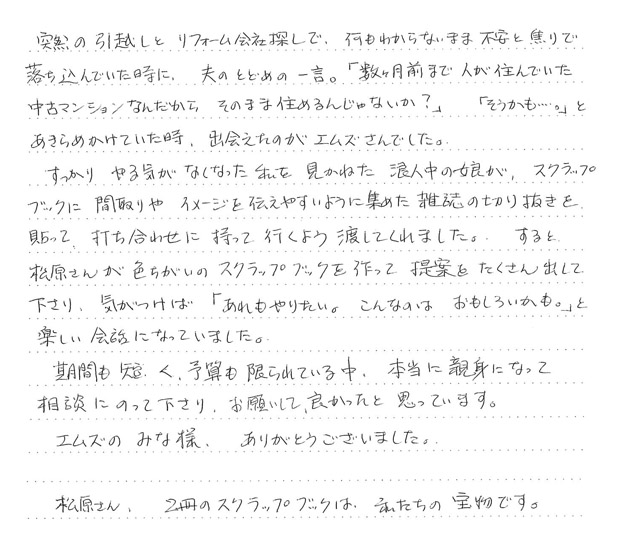 突然の引越しと リフォーム会社探しで、何もわからないまま 不安と焦りで
落ち込んでいた時に、夫のとどめの一言。「数ヶ月前まで人が住んでいた
中古マンションなんだから そのまま住めるんじゃないか？」 「そうかも…。」と
あきらめかけていた時、出会えたのが エムズさんでした。
すっかり やる気がなくなった私を見かねた 浪人中の娘が、スクラップ
ブックに 間取りや イメージを伝えやすいように集めた 雑誌の切り抜きを
貼って、打ち合わせに 持って行くよう 渡してくれました。 すると
松原さんが色ちがいの スクラップブックを作って 提案をたくさん出して
下さり、気がつけば 「あれもやりたい。こんなのは おもしろいかも。」と
楽しい会話になっていました。
期間も短く、予算も限られている中、本当に親身になって
相談にのって下さり、お願いして、良かったと思っています。
エムズの みな様、 ありがとうございました。
松原さん、 2冊のスクラップブックは、私たちの宝物です。